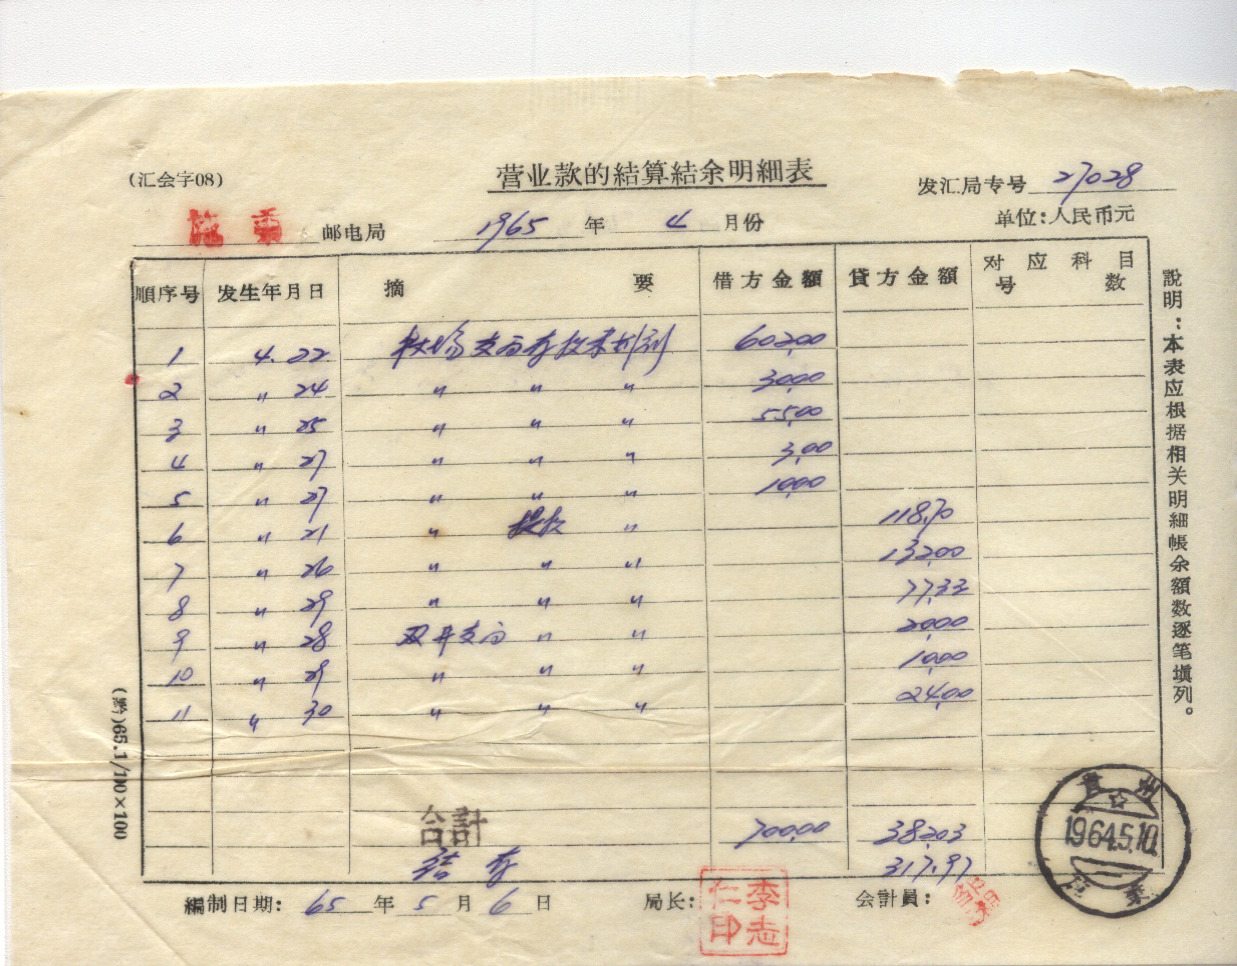 营业款的結算結余明細表
(汇会字08)
发汇局专号 27028
施秉 邮电局 1965 年 4 月份 单位:人民币元
順序号 发生年月日 摘要 借方金額 貸方金額 对应科目号数
1 4.22 支局存 602.00
2 〃 24 〃 〃 〃 30.00
3 〃 25 〃 〃 〃 55.00
4 〃 27 〃 〃 〃 3.00
5 〃 27 〃 〃 〃 10.00
6 〃 21 〃 〃 118.70
7 〃 26 〃 〃 〃 132.00
8 〃 29 〃 〃 〃 77.33
9 〃 28 双井支局 〃 〃 20.00
10 〃 29 〃 〃 〃 10.00
11 〃 30 〃 〃 〃 24.00
合計 700.00 382.03
結存 317.97
編制日期: 65 年 5 月 6 日 局长: 李志仁印 会計員:
說明:本表应根据相关明細帳余額数逐笔填列。
(黔)65.1/100×100
貴州
1964.5.10.
施秉